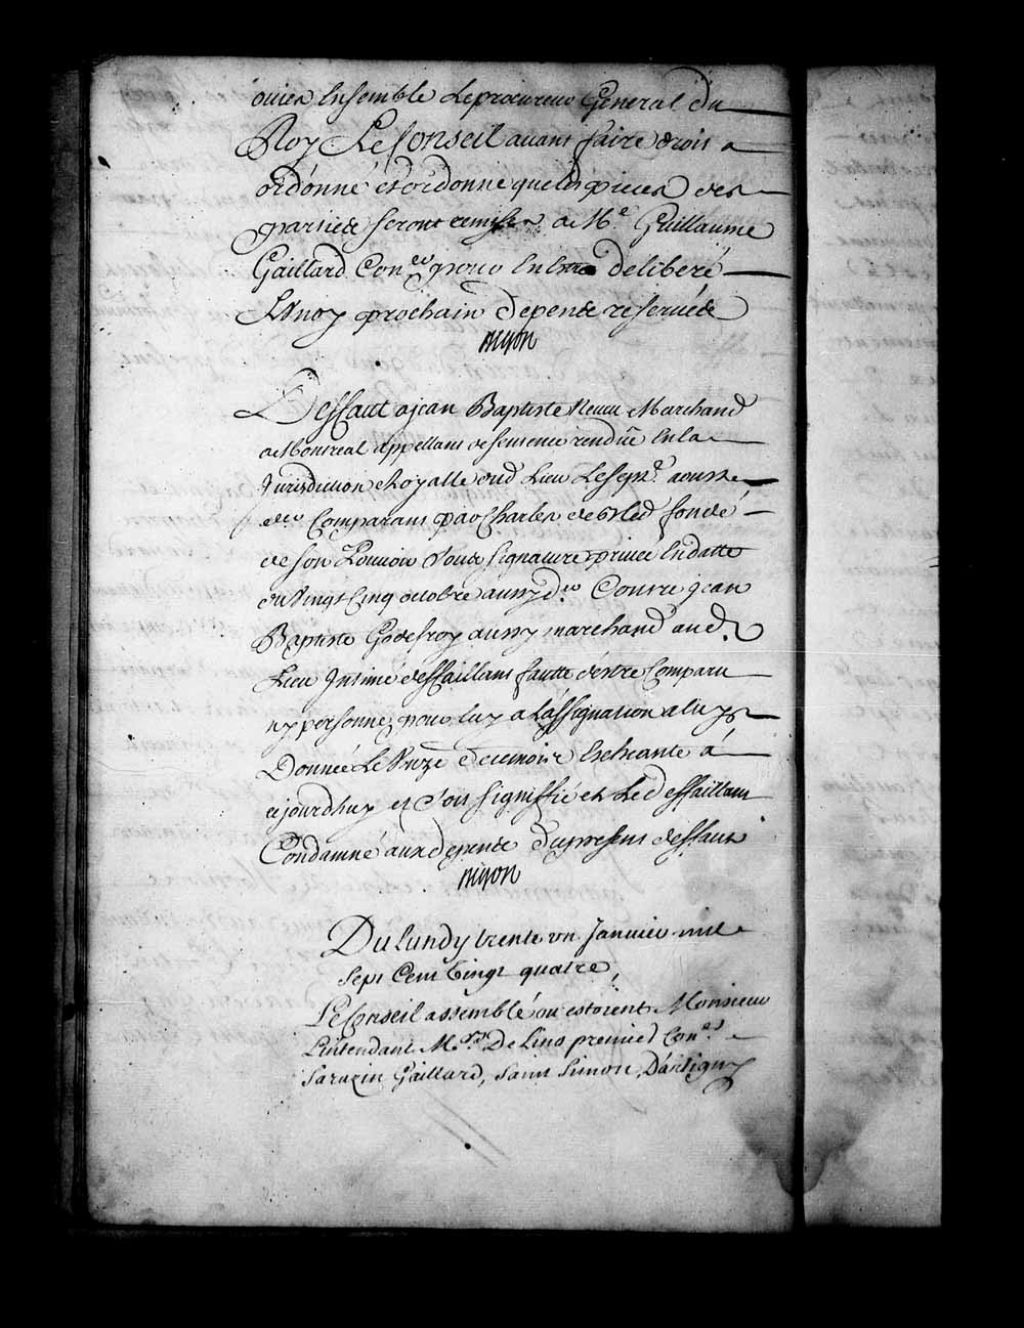 ouies Ensemble Le procureur General du
Roy Le Conseil avant faire droit a
ordonné et ordonne que les pieces des
parties seront remises a Me Guillaume
Gaillard Coner pour En Estre deliberé
Lundy prochain depens reservés
Deffaut a jean Baptiste Neveu Marchand
a Montreal appellant de sentence rendue En la
Jurisdiction Royalle dud. Lieu Le Sept aoust
der Comparant par Charles fondé
de son Pouvoir Sous Signature privée En datte
du Vingt Cinq octobre aussy der Contre jean
Baptiste Godefroy aussy marchand aud.
Lieu Intimé deffaillant fautte d'estre Comparu
ny personne pour luy a L'assignation a luy
Donnée Le Unze decembre Escheante a
ajourdhuy et Soit signiffié et Led. deffaillant
Condamné aux depens du present deffaut
Du Lundy trente un Janvier mil
Sept Cent Vingt quatre,
Le Conseil assemblé ou estoient Monsieur
L'intendant Mes De Lino premier Coner
Sarazin Gaillard, Saint Simon, D'artigny